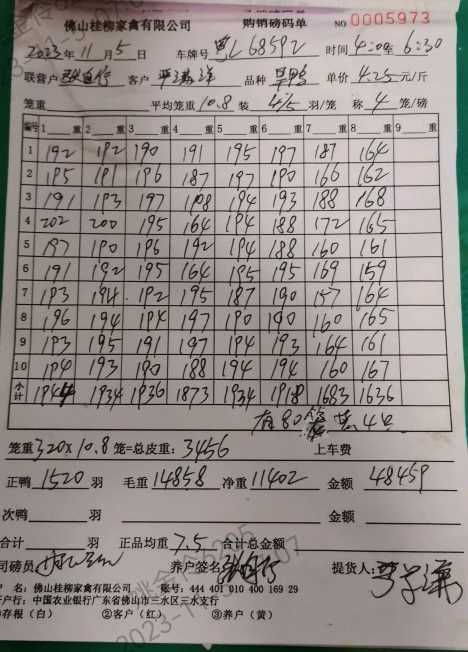 佛山桂柳家禽有限公司 购销磅码单 NO 0005973
2023年11月5日 车牌号 粤L68592 时间 4:00至6:30
联营户 客户 品种 单价 4.25 元/斤
笼重 平均笼重 10.8 装 4/5 羽/笼 称 4 笼/磅
编号 1 重 2 重 3 重 4 重 5 重 6 重 7 重 8 重 9 重
1 192 192 190 191 195 197 187 164
2 195 191 196 187 197 190 166 162
3 191 193 197 198 194 193 188 168
4 202 200 195 164 194 188 172 165
5 197 190 196 192 194 188 160 161
6 191 192 195 164 195 195 169 159
7 193 194 192 195 187 190 157 164
8 196 194 194 197 190 190 160 165
9 193 195 191 197 194 193 164 161
10 194 193 190 188 194 194 160 167
小计 1944 1934 1936 1873 1934 1918 1683 1636
有80笼 4只
笼重 320×10.8 笼=总皮重: 3456 上车费
正鸭 1520 羽 毛重 14858 净重 11402 金额 48459
次鸭 羽 金额
合计 羽 正品均重 7.5 合计总金额
司磅员 养户签名 提货人:
户 名: 佛山桂柳家禽有限公司 账号: 444 401 010 400 169 29
户行: 中国农业银行广东省佛山市三水区三水支行
存根(白) ②客户(红) ③养户(黄)